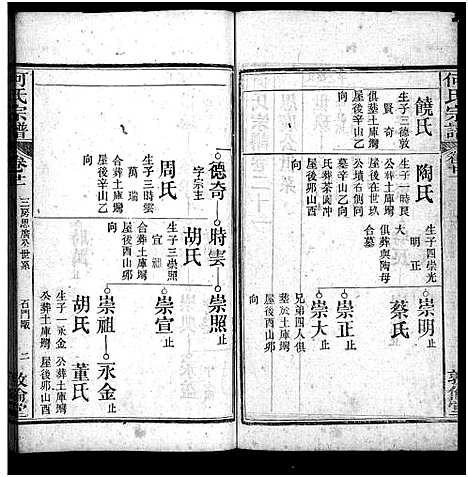 何氏宗譜
卷廿一
饒氏
生子三德敦
賢奇
俱葬土庫塆
屋後辛山乙
向
陶氏
生子一時良
公葬土庫塆
屋後在世玖
公墳右側同
墓辛山乙向
民葬茶園冲
生子四崇光
明正
大
俱葬與陶母
合墓
崇明止
蔡氏
崇正止
崇大止
兄弟四人俱
塟於土庫塆
屋後夘山酉
向
敦倫堂
何氏宗譜
卷廿一
三房思廣公世系
石門墩
二
敦倫堂
德奇
字宗主
周氏
生子三時雲
萬瑞
合葬土庫塆
屋後辛山乙
向
時雲
胡氏
生子三崇照
宣祖
合葬土庫塆
屋後酉山夘
向
崇照止
崇宣止
崇祖
胡氏
生子一永金
公葬土庫塆
屋後夘山酉
向
永金止
董氏